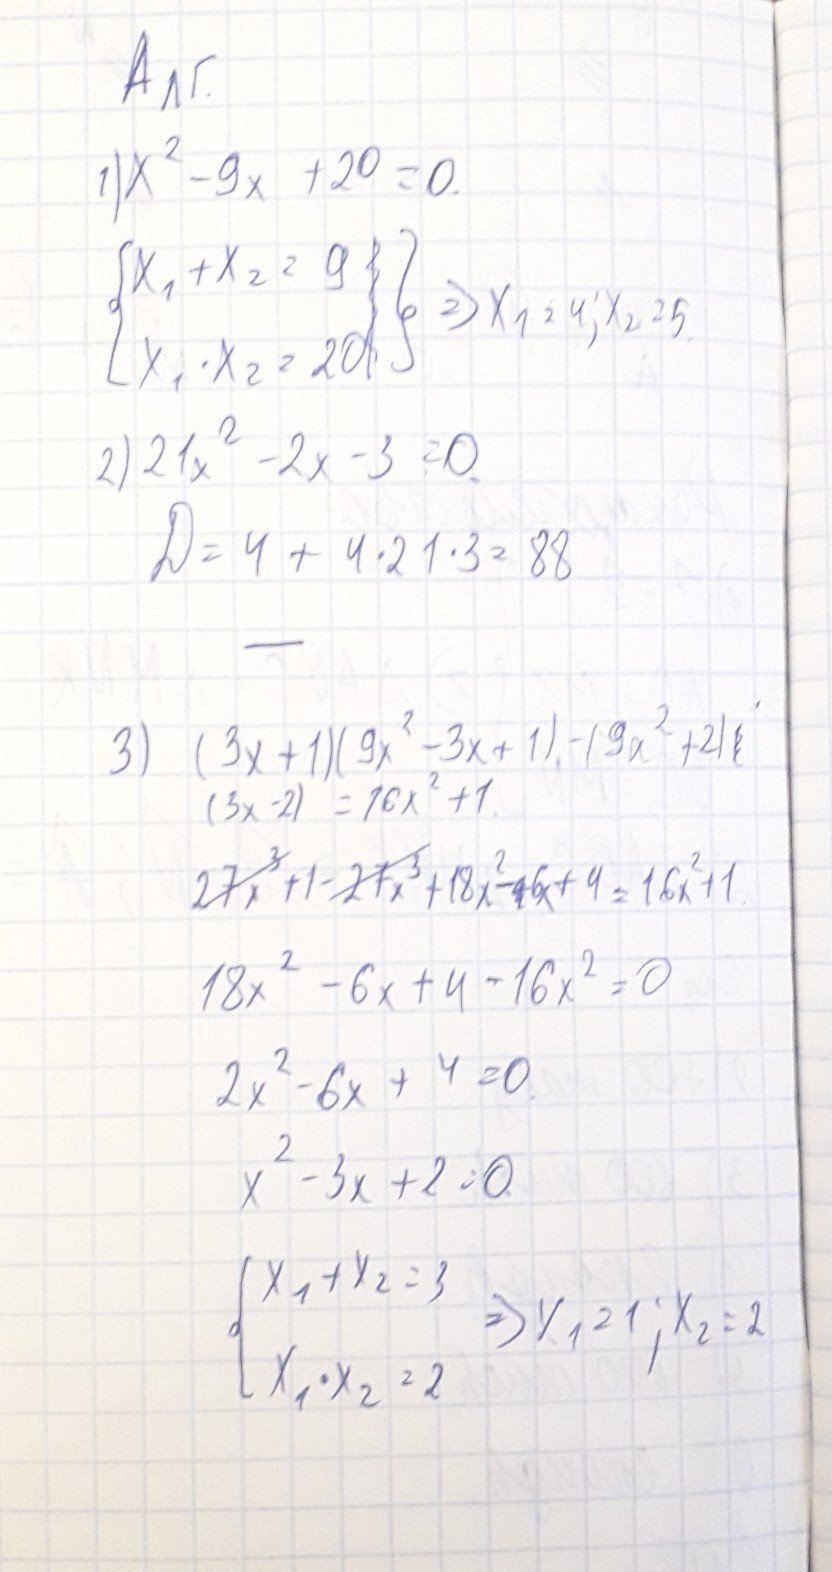 Алг.
1) x² - 9x + 20 = 0.
{x₁ + x₂ = 9
{x₁ · x₂ = 20 } => x₁ = 4; x₂ = 5.
2) 21x² - 2x - 3 = 0.
D = 4 + 4·21·3 = 88
—
3) (3x+1)(9x² - 3x + 1) - (9x² + 2)
(3x-2) = 16x² + 1.
27x³ + 1 - 27x³ + 18x² - 6x + 4 = 16x² + 1.
18x² - 6x + 4 - 16x² = 0
2x² - 6x + 4 = 0.
x² - 3x + 2 = 0.
{x₁ + x₂ = 3
{x₁ · x₂ = 2 => x₁ = 1; x₂ = 2